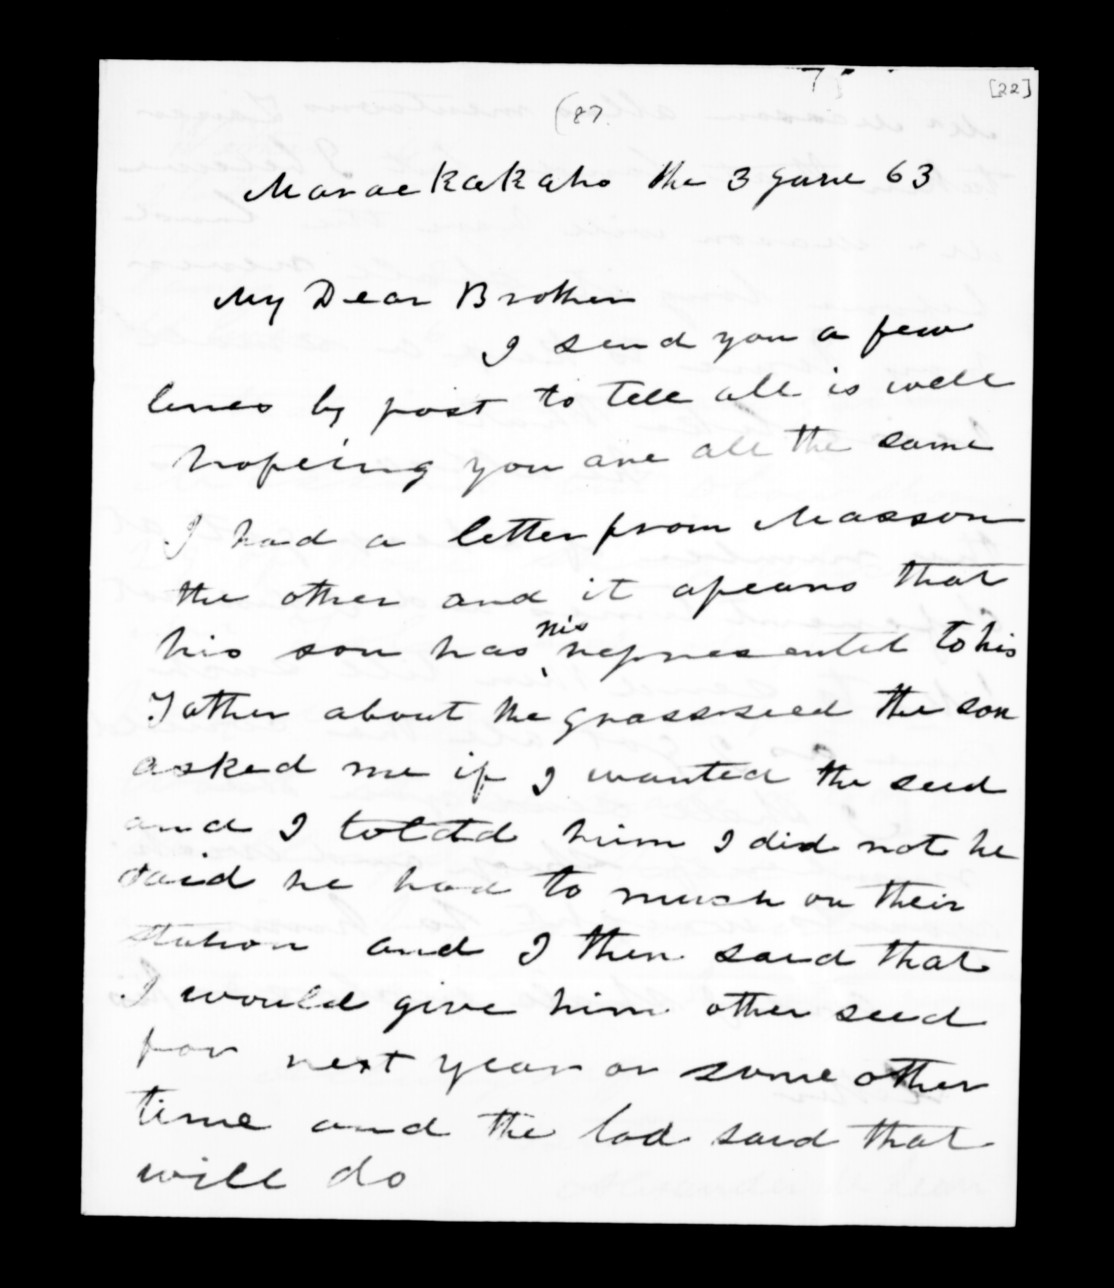 [22]
(87.
Maraekakaho the 3 June 63
My Dear Brother
I send you a few
lines by post to tell all is well
hopeing you are all the same
I had a letter from Masson
the other and it apears that
his son has mis represented to his
Father about the grass seed the son
asked me if I wanted the seed
and I toldd him I did not he
said he had to mush on their
station and I then said that
I would give him other seed
for next year or some other
time and the lad said that
will do